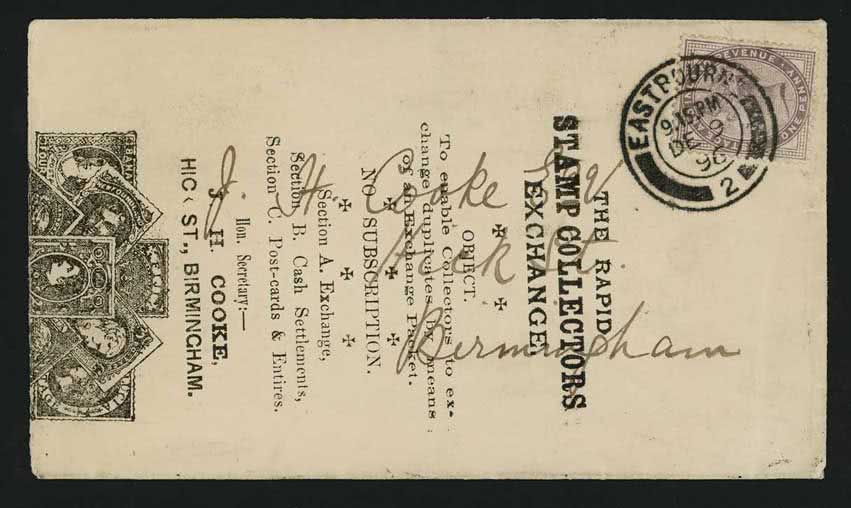 THE RAPID
STAMP COLLECTORS
EXCHANGE.
OBJECT.
To enable Collectors to ex-
change duplicates by means
of an Exchange Packet.
NO SUBSCRIPTION.
Section A. Exchange,
Section B. Cash Settlements,
Section C. Post-cards & Entires.
Hon. Secretary:—
J. H. COOKE,
HICK ST., BIRMINGHAM.
J. H. Cooke
Hick St.
Birmingham
EASTBOURNE
9.15 PM
DE 9
96
2
REVENUE
ONE PENNY